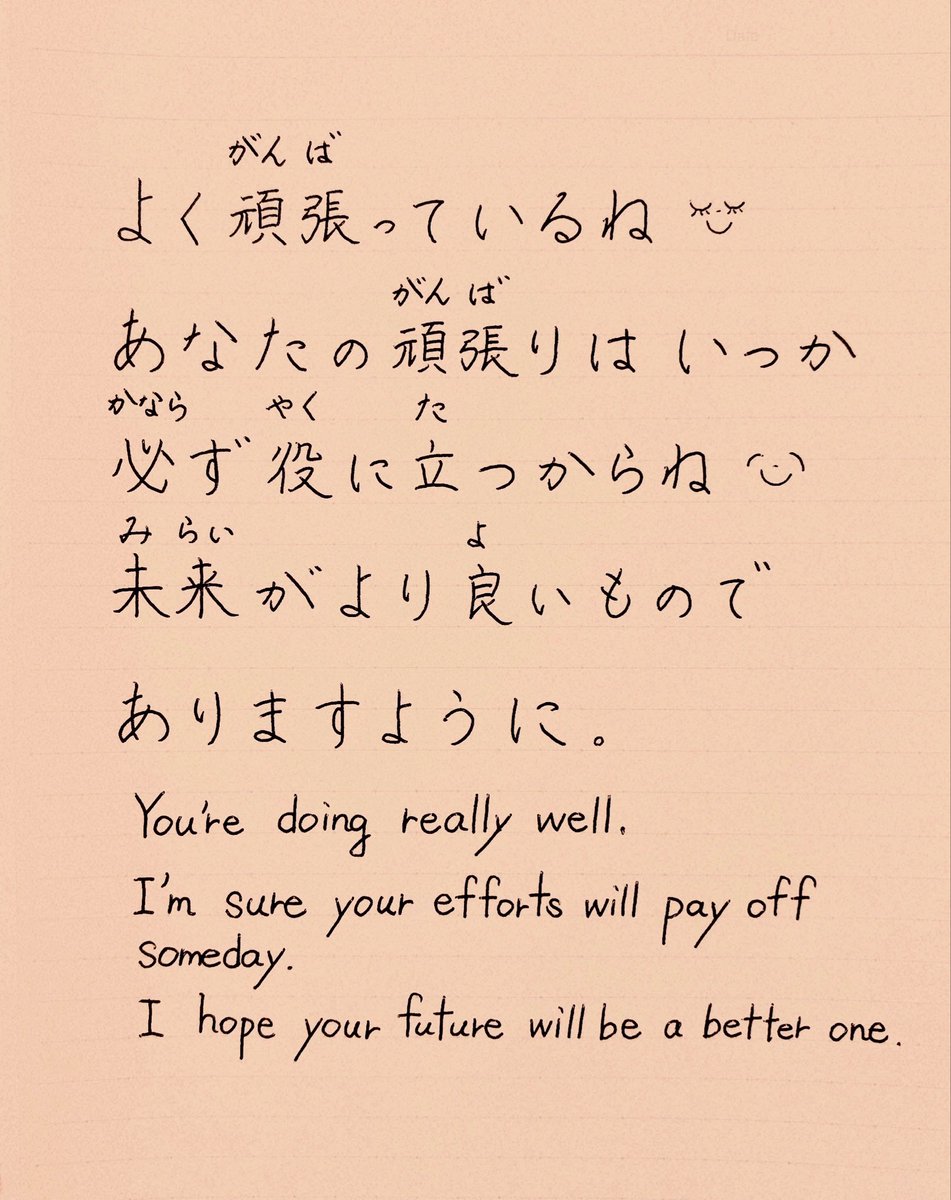 がんば
よく頑張っているね
がんば
あなたの頑張りはいつか
かなら やく た
必ず役に立つからね
みらい よ
未来がより良いもので
ありますように。
You're doing really well.
I'm sure your efforts will pay off
someday.
I hope your future will be a better one.